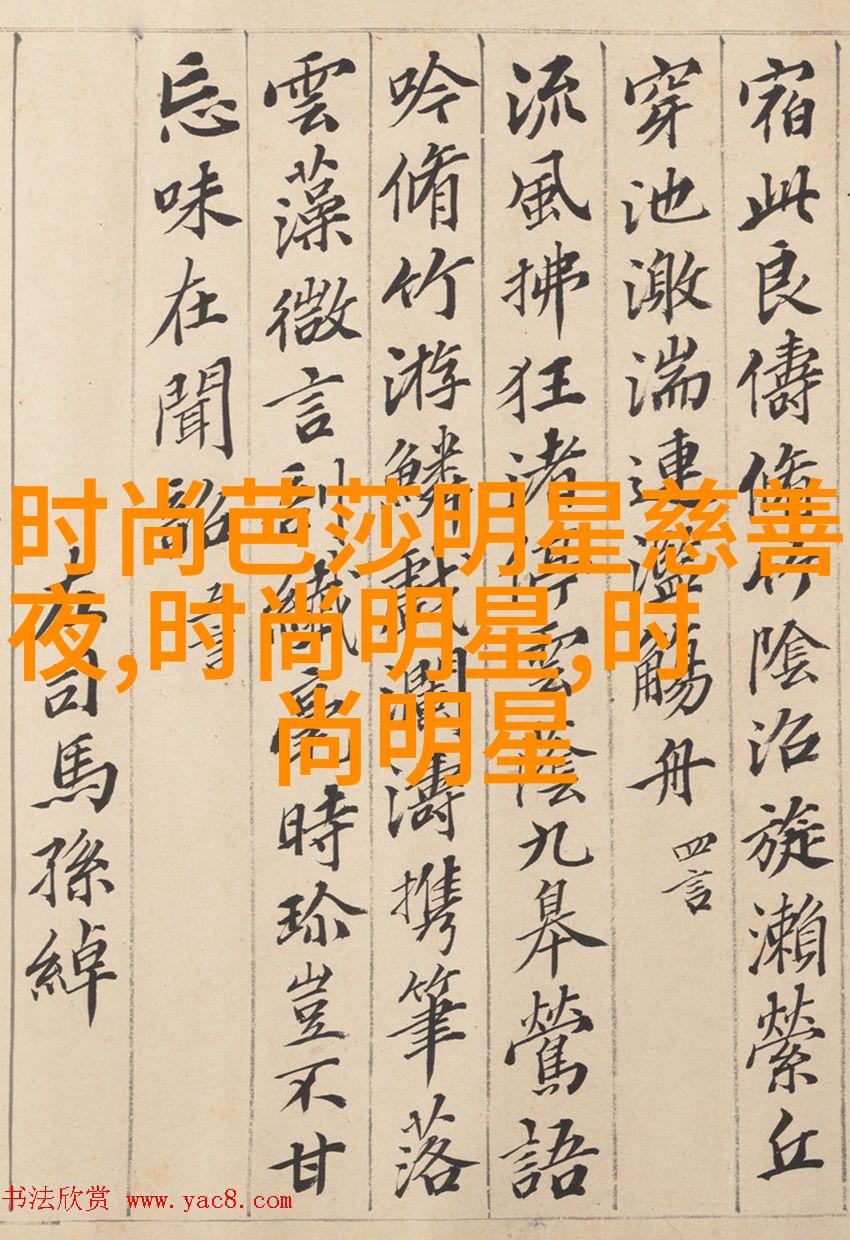 宿此良儔脩竹陰沼旋瀨縈丘
穿池激湍連濫觴舟 四言
流風拂狂渚停雲蔭九皋鶯語
吟脩竹游鱗戲瀾濤携筆落
雲藻微言剖纖毫時珍豈不甘
忘味在聞韶 五言
左司馬孫綽
时尚芭莎明星慈善
夜,时尚明星,时
尚明星
书法欣赏 www.yac8.com